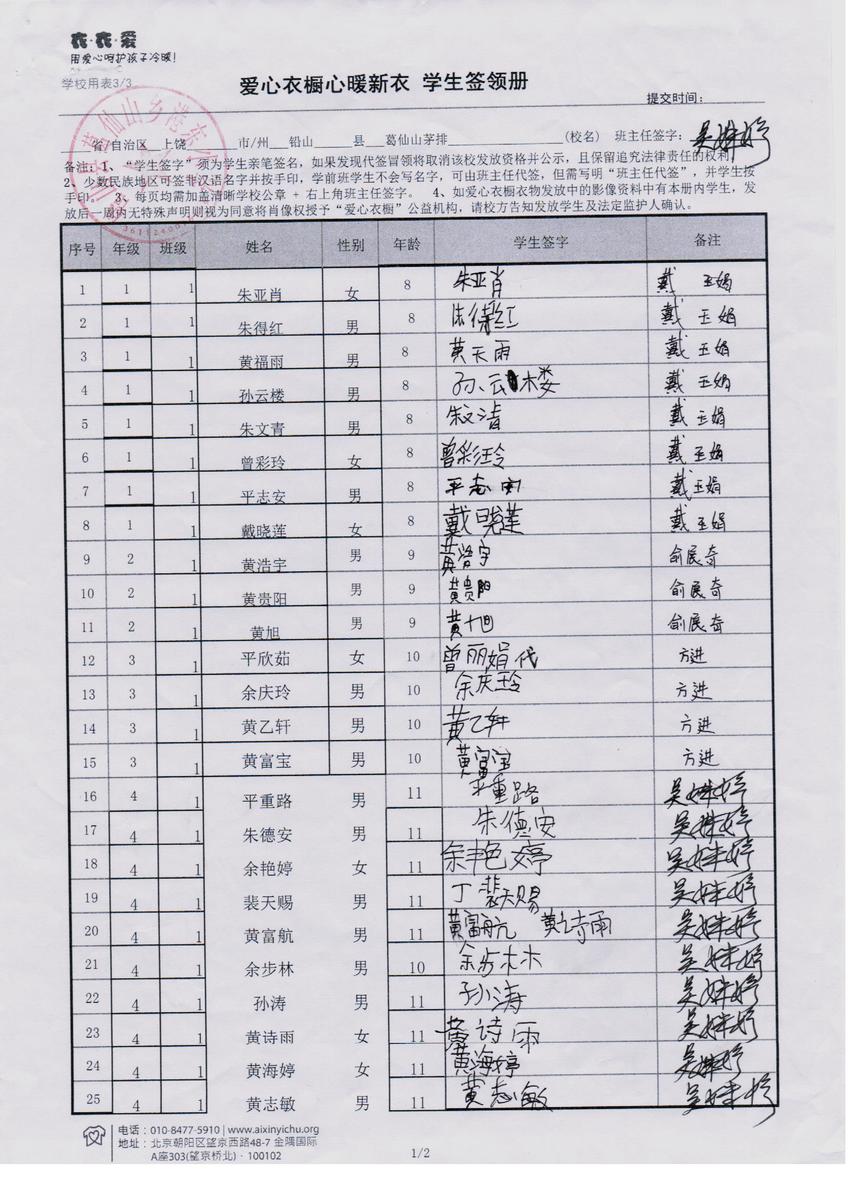 衣·衣·爱
用爱心呵护孩子冷暖！
学校用表3/3
爱心衣橱心暖新衣 学生签领册
提交时间：
省/自治区 上饶 市/州 铅山 县 葛仙山茅排 (校名) 班主任签字：吴姝婷
备注：1、“学生签字”须为学生亲笔签名，如果发现代签冒领将取消该校发放资格并公示，且保留追究法律责任的权利
2、少数民族地区可签非汉语名字并按手印，学前班学生不会写名字，可由班主任代签，但需写明“班主任代签”，并学生按
手印。 3、每页均需加盖清晰学校公章 + 右上角班主任签字。 4、如爱心衣橱衣物发放中的影像资料中有本册内学生，发
放后一周内无特殊声明则视为同意将肖像权授予“爱心衣橱”公益机构，请校方告知发放学生及法定监护人确认。
序号 年级 班级 姓名 性别 年龄 学生签字 备注
1 1 1 朱亚肖 女 8 朱亚肖 戴玉娟
2 1 1 朱得红 男 8 朱得红 戴玉娟
3 1 1 黄福雨 男 8 黄天雨 戴玉娟
4 1 1 孙云楼 男 8 孙云楼 戴玉娟
5 1 1 朱文青 男 8 朱文清 戴玉娟
6 1 1 曾彩玲 女 8 曾彩玲 戴玉娟
7 1 1 平志安 男 8 平志安 戴玉娟
8 1 1 戴晓莲 女 8 戴晓莲 戴玉娟
9 2 1 黄浩宇 男 9 黄浩宇 俞展奇
10 2 1 黄贵阳 男 9 黄贵阳 俞展奇
11 2 1 黄旭 男 9 黄旭 俞展奇
12 3 1 平欣茹 女 10 曾丽娟代 方进
13 3 1 余庆玲 男 10 余庆玲 方进
14 3 1 黄乙轩 男 10 黄乙轩 方进
15 3 1 黄富宝 男 10 黄富宝 方进
16 4 1 平重路 男 11 平重路 吴姝婷
17 4 1 朱德安 男 11 朱德安 吴姝婷
18 4 1 余艳婷 女 11 余艳婷 吴姝婷
19 4 1 裴天赐 男 11 丁裴天赐 吴姝婷
20 4 1 黄富航 男 11 黄富航 黄诗雨 吴姝婷
21 4 1 余步林 男 10 余步林 吴姝婷
22 4 1 孙涛 男 11 孙涛 吴姝婷
23 4 1 黄诗雨 女 11 黄诗雨 吴姝婷
24 4 1 黄海婷 女 11 黄海婷 吴姝婷
25 4 1 黄志敏 男 11 黄志敏 吴姝婷
电话：010-8477-5910 | www.aixinyichu.org
地址：北京朝阳区望京西路48-7 金隅国际
A座303(望京桥北)·100102
1/2